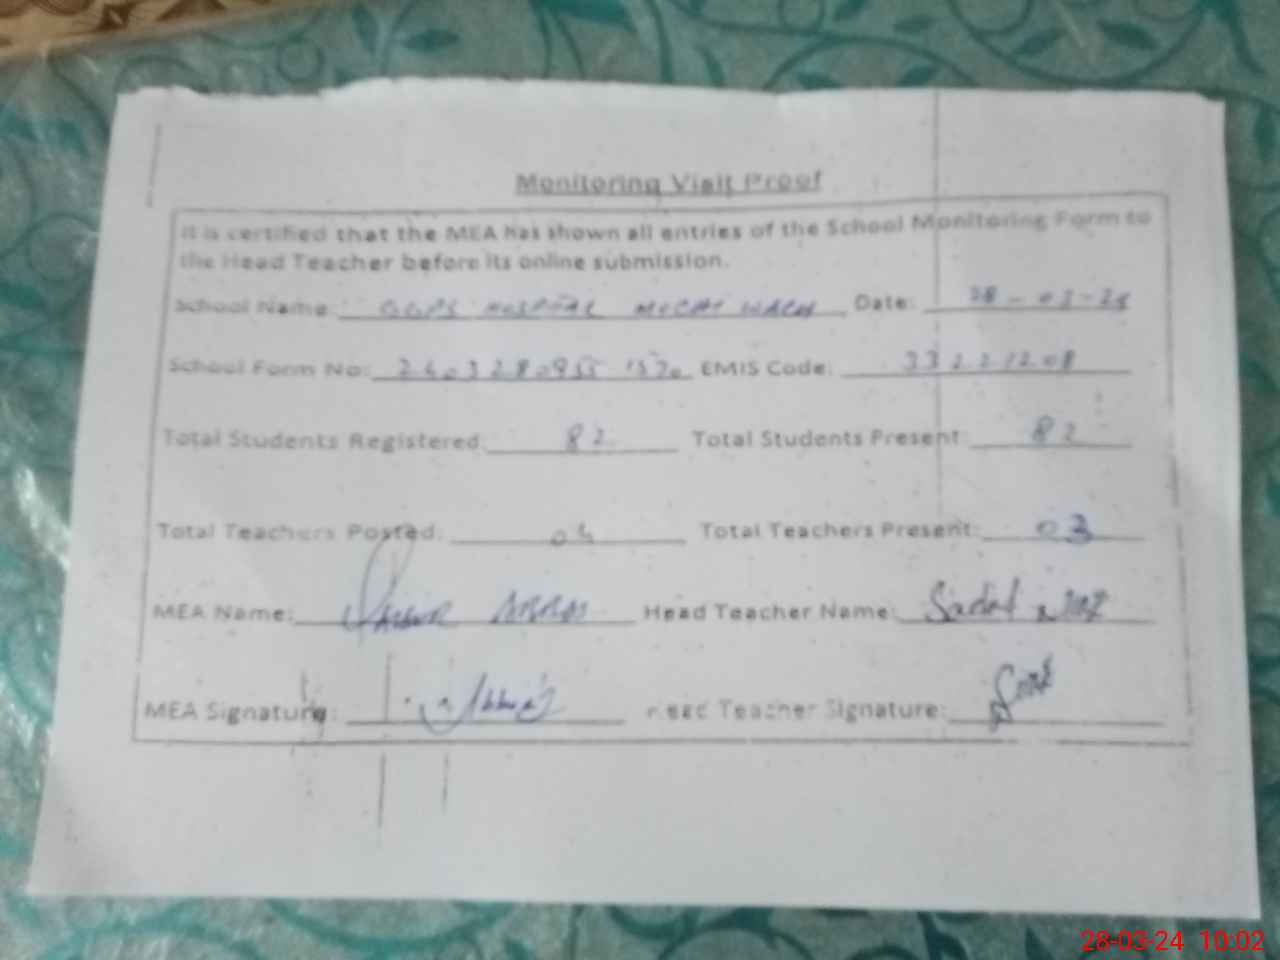 Monitoring Visit Proof
It is certified that the MEA has shown all entries of the School Monitoring Form to
the Head Teacher before its online submission.
School Name: HOSPITAL Date: 28-03-24
School Form No: EMIS Code:
Total Students Registered: 82 Total Students Present: 82
Total Teachers Posted: 04 Total Teachers Present: 03
MEA Name: ABBAS Head Teacher Name:
MEA Signature: Head Teacher Signature:
28-03-24 10:02